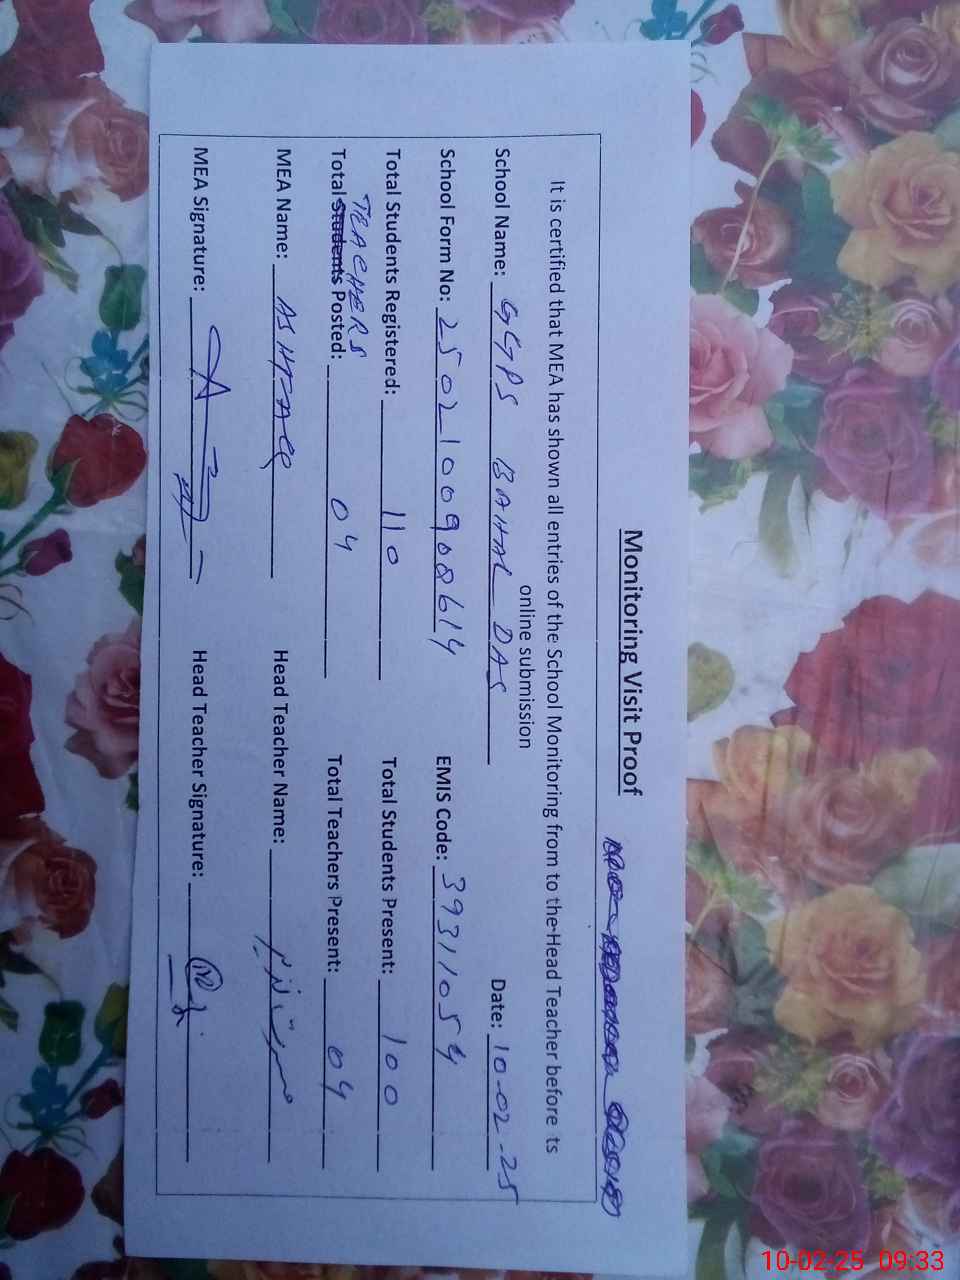 Monitoring Visit Proof
It is certified that MEA has shown all entries of the School Monitoring from to the Head Teacher before ts
online submission
School Name: GGPS BAHAL DAS Date: 10-02-25
School Form No: 25021009008614 EMIS Code: 39311054
Total Students Registered: 110 Total Students Present: 100
TEACHERS
Total Students Posted: 04 Total Teachers Present: 04
MEA Name: ASHFAQ Head Teacher Name:
MEA Signature: Head Teacher Signature:
10-02-25 09:33